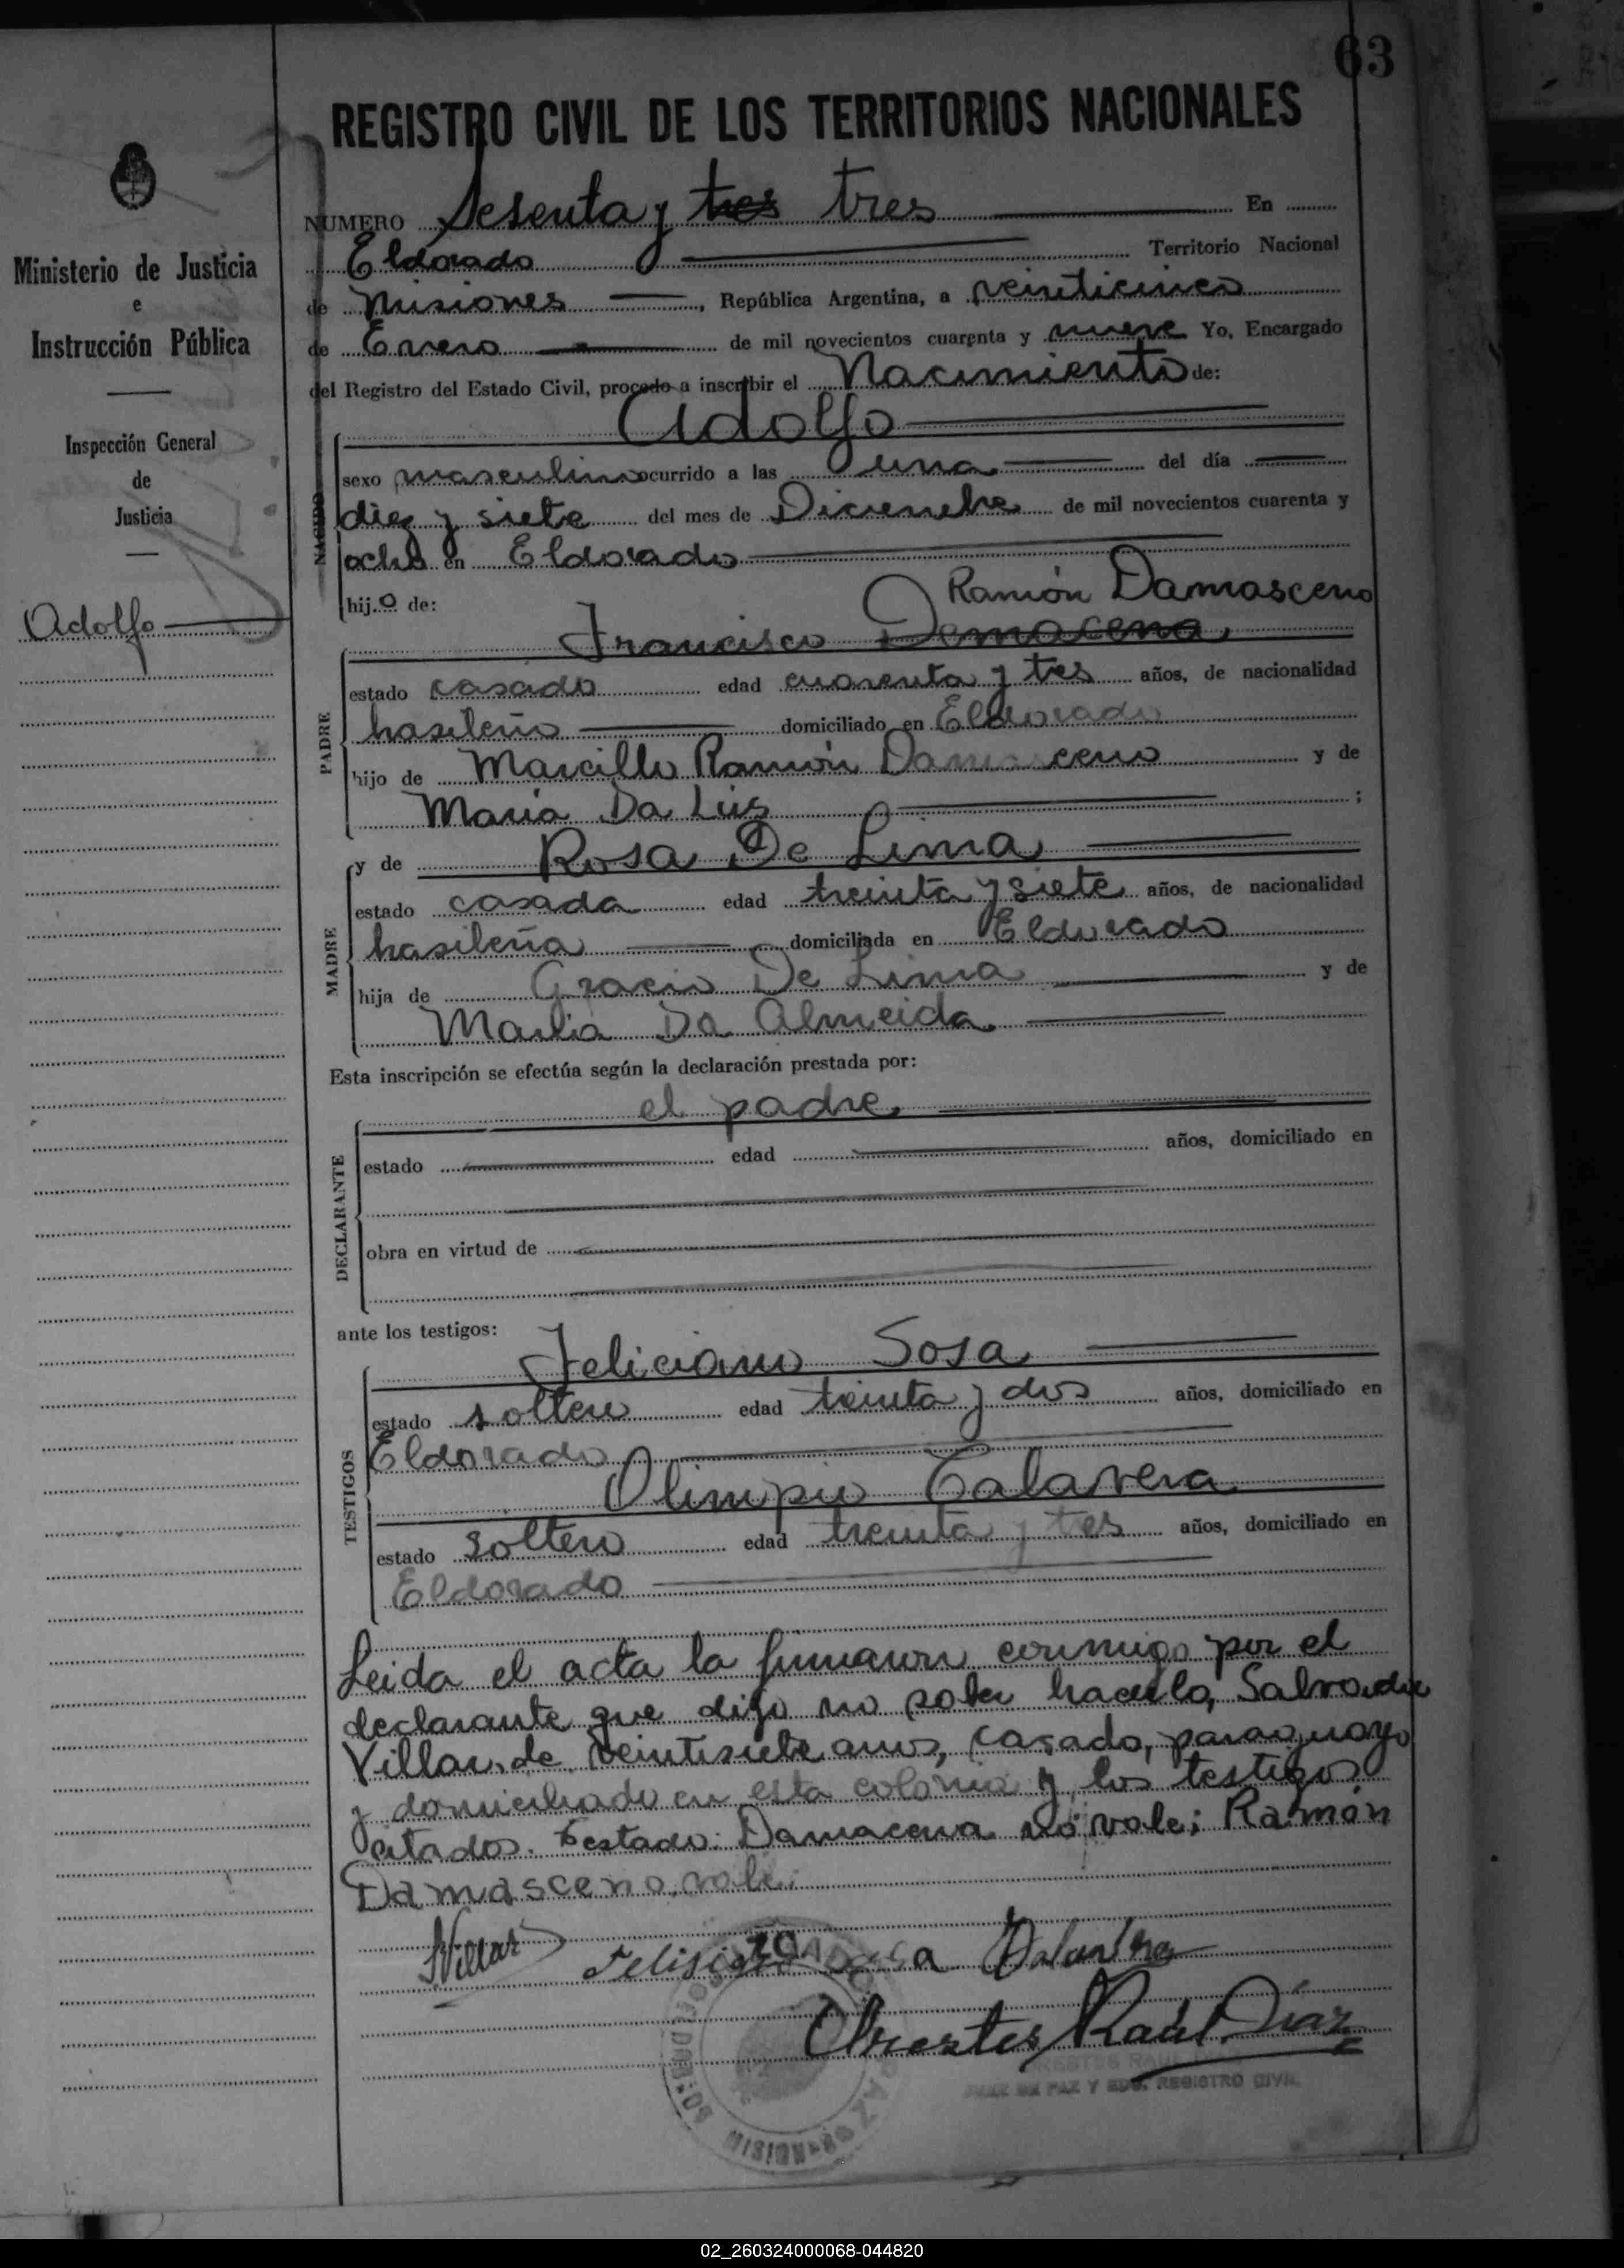 63
REGISTRO CIVIL DE LOS TERRITORIOS NACIONALES
Ministerio de Justicia
e
Instrucción Pública
Inspección General
de
Justicia
Adolfo
NUMERO Sesenta y tres tres En
Eldorado Territorio Nacional
de Misiones, República Argentina, a veinticinco
de Enero de mil novecientos cuarenta y nueve Yo, Encargado
del Registro del Estado Civil, procedo a inscribir el Nacimiento de:
NACIDO
Adolfo
sexo masculino ocurrido a las una del día
diez y siete del mes de Diciembre de mil novecientos cuarenta y
ocho en Eldorado
hijo de:
Ramón Damasceno
Francisco Damacena
PADRE
estado casado edad cuarenta y tres años, de nacionalidad
brasileño domiciliado en Eldorado
hijo de Marcillo Ramón Damasceno y de
Maria Da Luis ;
MADRE
y de Rosa De Lima
estado casada edad treinta y siete años, de nacionalidad
brasileña domiciliada en Eldorado
hija de Gracio De Lima y de
Maria Da Almeida
Esta inscripción se efectúa según la declaración prestada por:
DECLARANTE
el padre
estado edad años, domiciliado en
obra en virtud de
ante los testigos:
TESTIGOS
Feliciano Sosa
estado soltero edad treinta y dos años, domiciliado en
Eldorado
Olimpio Talavera
estado soltero edad treinta y tres años, domiciliado en
Eldorado
Leida el acta la firmaron conmigo por el
declarante que dijo no saber hacerlo, Salvador
Villar, de veintisiete años, casado, paraguayo
y domiciliado en esta colonia y los testigos
citados. Testado: Damacena no vale; Ramón
Damasceno, vale.
SVillar Felisiano Sosa OTalavera
Orestes Raúl Díaz
ORESTES RAUL
JUEZ DE PAZ Y EDO. REGISTRO CIVIL
MISIONES
02_260324000068-044820